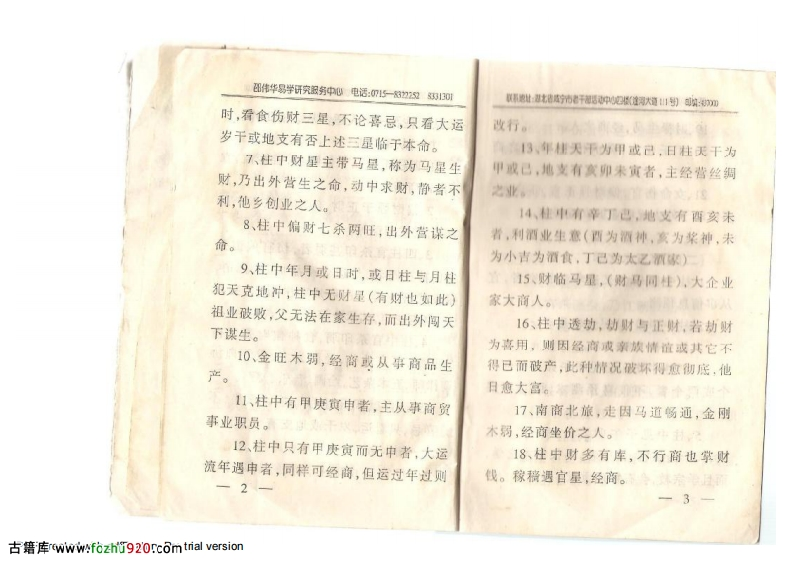 邵伟华易学研究服务中心 电话:0715—8322252 8331301
时,看食伤财三星,不论喜忌,只看大运
岁干或地支有否上述三星临于本命。
7、柱中财星主带马星,称为马星生
财,乃出外营生之命,动中求财,静者不
利,他乡创业之人。
8、柱中偏财七杀两旺,出外营谋之
命。
9、柱中年月或日时,或日柱与月柱
犯天克地冲,柱中无财星(有财也如此)
祖业破败,父无法在家生存,而出外闯天
下谋生。
10、金旺木弱,经商或从事商品生
产。
11、柱中有甲庚寅申者,主从事商贸
事业职员。
12、柱中只有甲庚寅而无申者,大运
流年遇申者,同样可经商,但运过年过则
— 2 —
联系地址:湖北省咸宁市老干部活动中心四楼 邮编:437000
改行。
13、年柱天干为甲或己,日柱天干为
甲或己,地支有亥卯未寅者,主经营丝绸
之业。
14、柱中有辛丁己,地支有酉亥未
者,利酒业生意(酉为酒神,亥为浆神,未
为小吉为酒食,丁己为太乙酒家)
15、财临马星,(财马同柱),大企业
家大商人。
16、柱中透劫,劫财与正财,若劫财
为喜用,则因经商或亲族情谊或其它不
得已而破产,此种情况破坏得愈彻底,他
日愈大富。
17、南商北旅,走因马道畅通,金刚
木弱,经商坐价之人。
18、柱中财多有库,不行商也掌财
钱。稼穑遇官星,经商。
— 3 —
古籍库 www.fczhu920.com
trial version